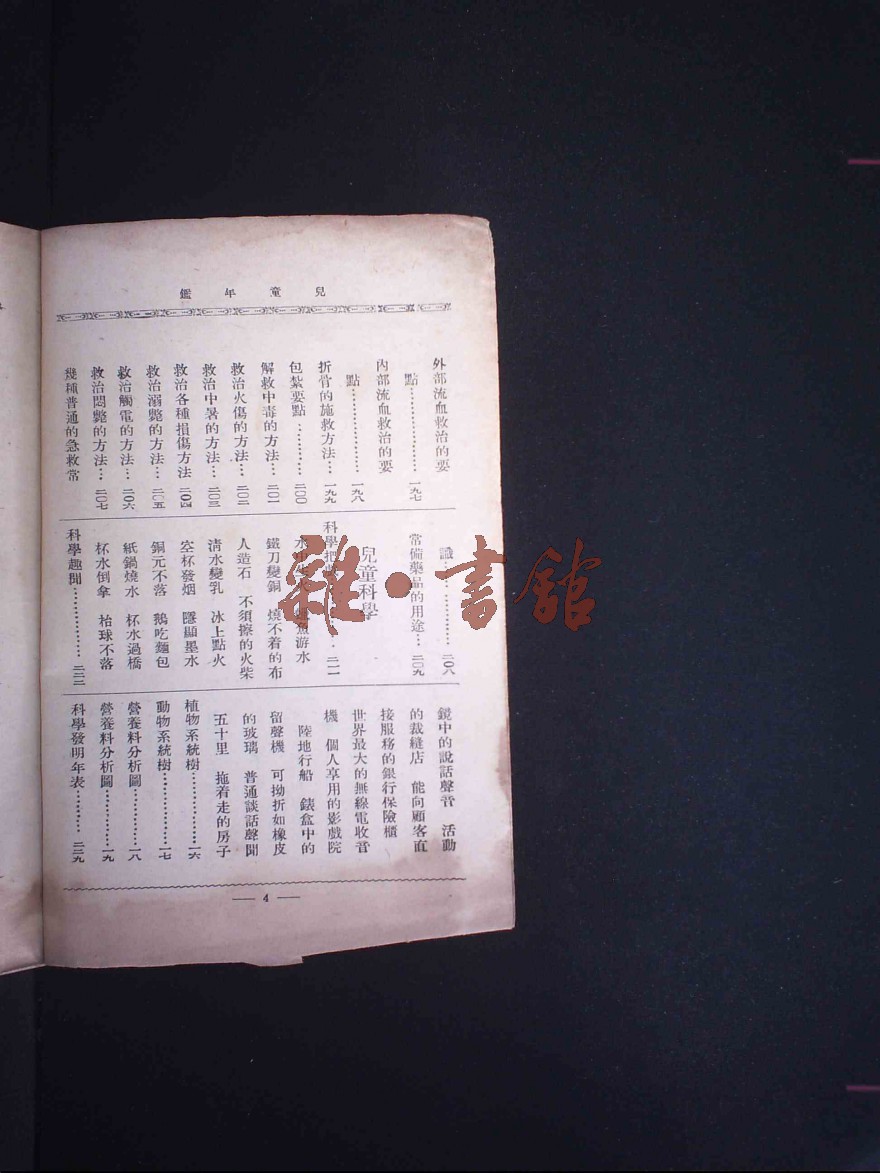 兒童年鑑
外部流血救治的要
點……………一九七
內部流血救治的要
點……………一九八
折骨的施救方法…一九九
包紮要點…………二〇〇
解救中毒的方法…二〇一
救治火傷的方法…二〇二
救治中暑的方法…二〇三
救治各種損傷方法 二〇四
救治溺斃的方法…二〇五
救治觸電的方法…二〇六
救治悶斃的方法…二〇七
幾種普通的急救常
識……………二〇八
常備藥品的用途…二〇九
兒童科學
科學把戲…二一一
游水
鐵刀變銅 燒不着的布
人造石 不須擦的火柴
清水變乳 冰上點火
空杯發烟 隱顯墨水
銅元不落 鵝吃麵包
紙鍋燒水 杯水過橋
杯水倒拿 枱球不落
科學趣聞……………二二二
鏡中的說話聲音 活動
的裁縫店 能向顧客直
接服務的銀行保險櫃
世界最大的無線電收音
機 個人享用的影戲院
陸地行船 錶盒中的
留聲機 可拗折如橡皮
的玻璃 普通談話聲聞
五十里 拖着走的房子
植物系統樹…………一六
動物系統樹…………一七
營養料分析圖………一八
營養料分析圖………一九
科學發明年表……二三九
— 4 —
雜·書館